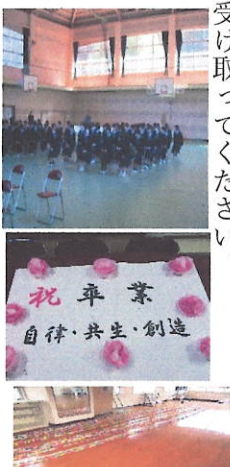 受け取ってください。
祝卒業
自律・共生・創造